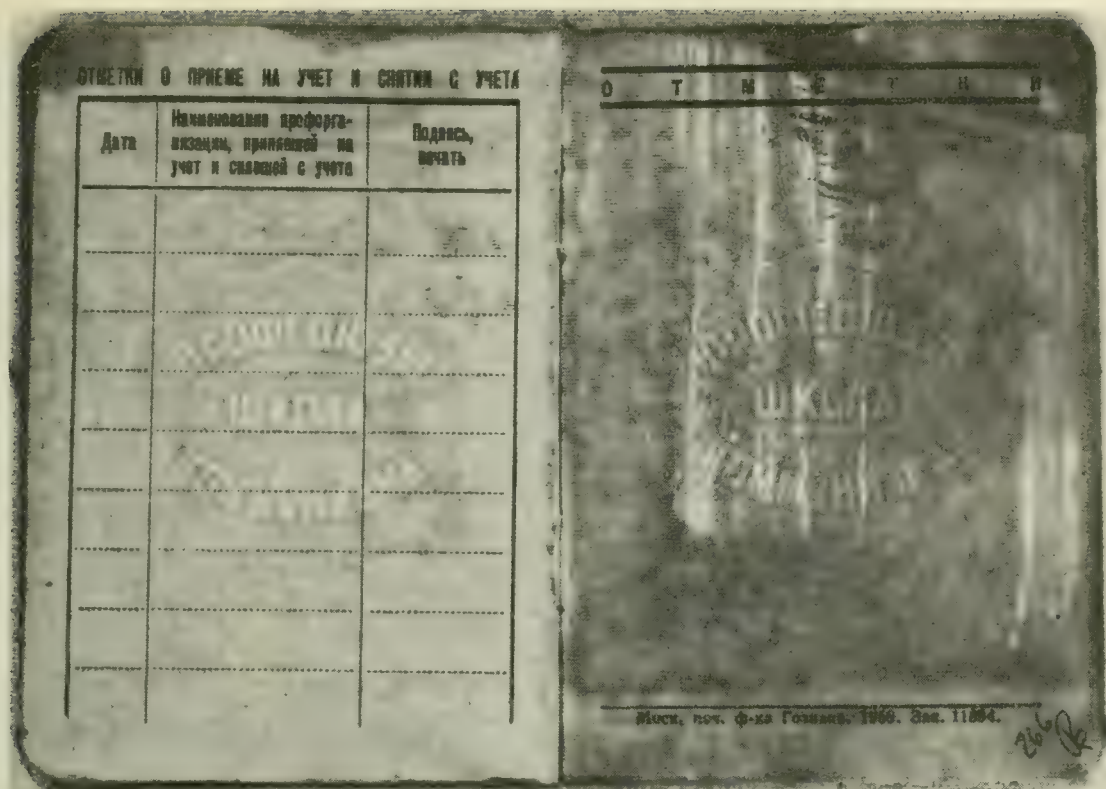 ОТМЕТКИ О ПРИЕМЕ НА УЧЕТ И СНЯТИИ С УЧЕТА
Дата
Наименование профорга-
низации, принявшей на
учет и снявшей с учета
Подпись,
печать
О Т М Е Т К И
ШКОЛА
Моск. печ. ф-ка Гознака. 1960. Зак.
266